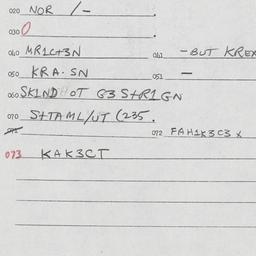 020 NOR /-
030 0
040 MR1C+3N 041 -BUT KREX
050 KRA. SN 051 -
060 SKIND OT G3 S+R1GN
070 S+TAML/UT (235.
072 FAH1K3C3X
073 KAK3CT